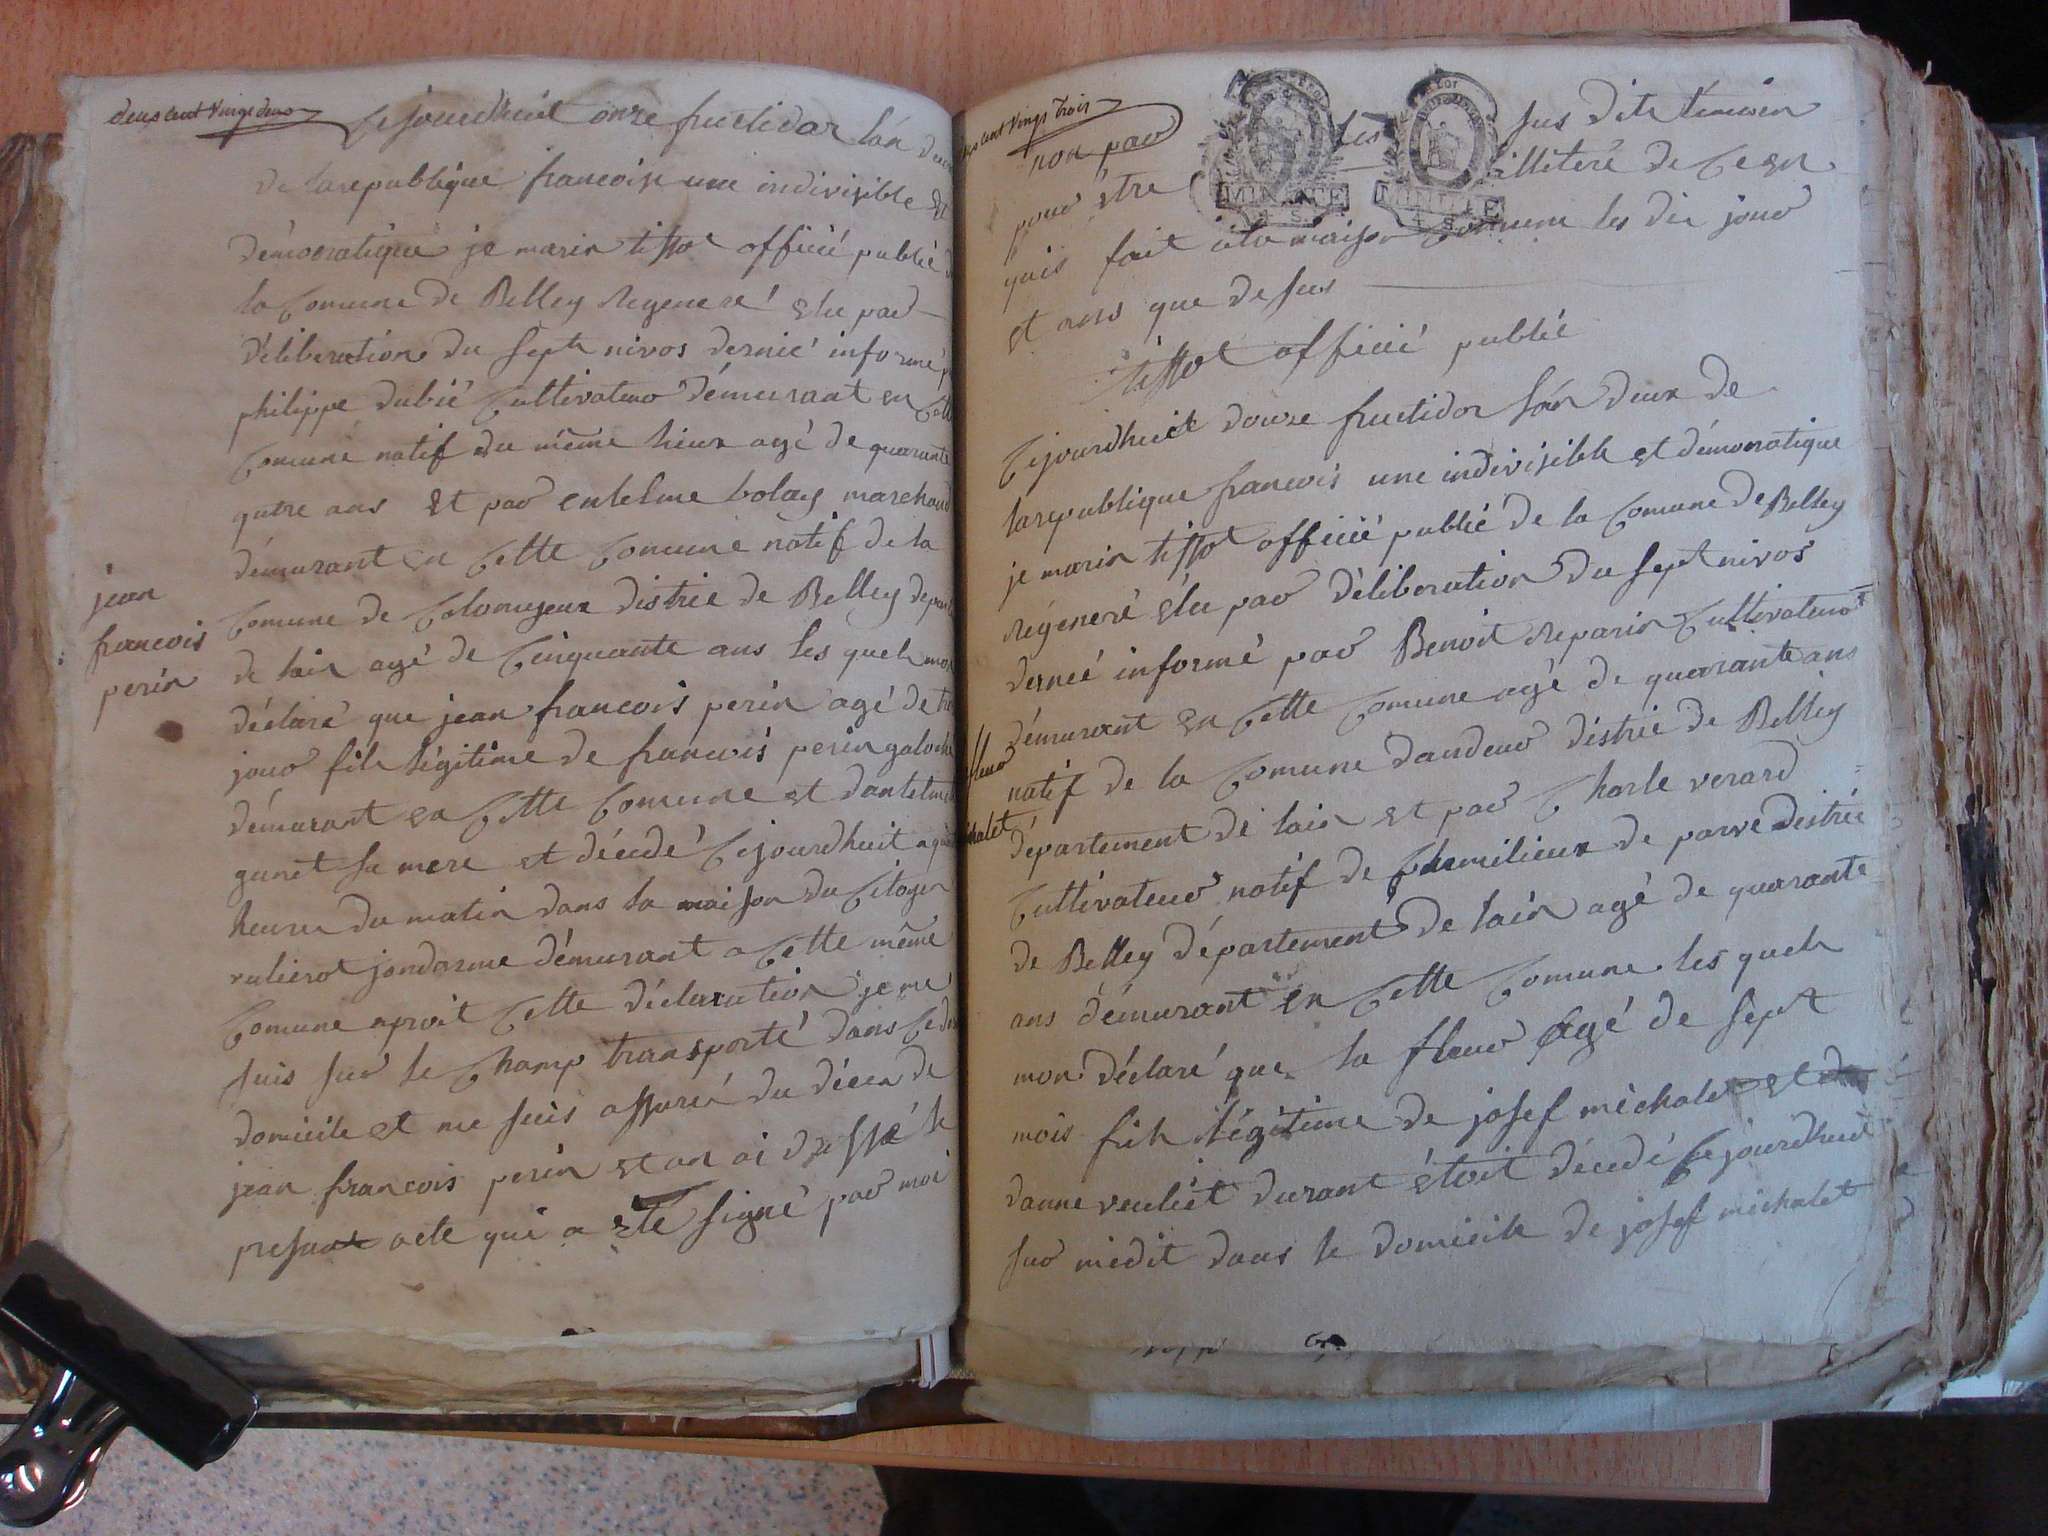 deux cent vingt deux
Cejourdhuit onze fructidor lán deux
de la republique francoise une indivisible et
démocratique je marin tissot officié publié de
la Comune de Belley Regeneré élu par
déliberation du sept nivos dernié informé
philippe dubié Cultivateur démurant en Cette
Comune natif du même lieux agé de quarante
qutre ans et par entelme bolay marchand
démurant en Cette Comune natif de la
Comune de Colomyeux distric de Belley
de lain agé de Cinquante ans les quels mon
déclaré que jean francois perin agé de
jour fils légitime de francois perin
démurant en Cette Comune et dantelme
gunet sa mere et décédé Cejourdhuit a
heures du matin dans la maison du Citoyen
rulierot jondarme démurant a Cette même
Comune aproit Cette déclaration je me
suis sur le Champ transporté dans Ce
domicile et me suis assuré du décen de
jean francois perin et an ai dressé le
presant acte qui a eté signé par moi
jean
francois
perin
cent vingt trois
non par les sus dits témoin
pour être illiteré de Ce en
quis fait a la maison Comune les dit jour
et ans que desus
MINUTE
4 S.
MINUTE
4 S.
tissot officié publié
Cejourdhuit douze fructidor lán deux de
la republique francois une indivisible et démocratique
je marin tissot officié publié de la Comune de Belley
Régeneré élu par déliberation du sept nivos
dernié informé par Benoit Reparin Cultivateur
démurant en Cette Comune agé de quarante ans
natif de la Comune dandeur distric de Belley
département de lain et par Charle verard
Cultivateur natif de Chemilieux de parve distric
de Belley département de lain agé de quarante
ans démurant en Cette Comune les quels
mon déclaré que la fleur agé de sept
mois fils légitime de josef michalet et
danne veuliet durant étoit décedé Cejourdhuit
sur midit dans le domicile de josef michalet
fleur
michalet